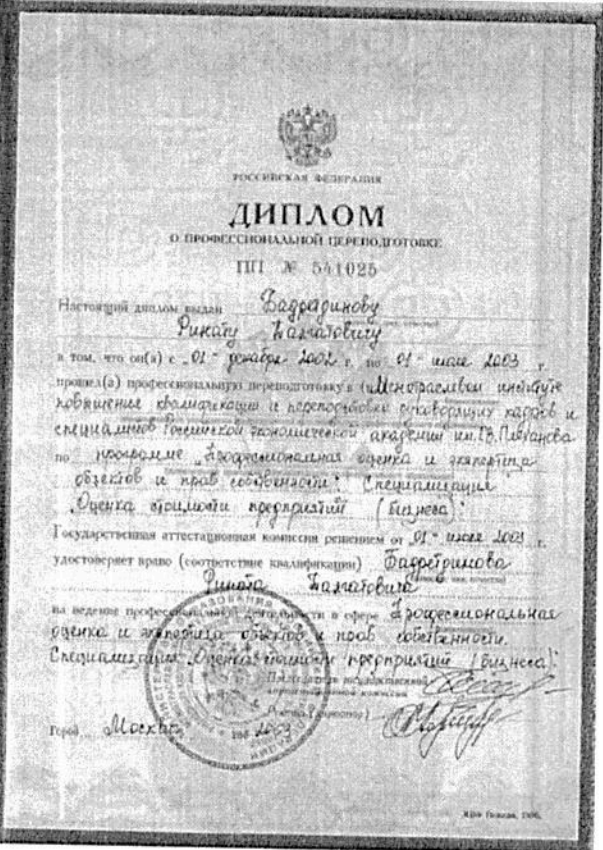 РОССИЙСКАЯ ФЕДЕРАЦИЯ
ДИПЛОМ
О ПРОФЕССИОНАЛЬНОЙ ПЕРЕПОДГОТОВКЕ
ПП № 541025
Настоящий диплом выдан Бадретдинову
Ринату Талгатовичу
в том, что он(а) с „01" декабря 2002 г. по „01" июля 2003 г.
прошел(а) профессиональную переподготовку в (на) Межотраслевом институте
повышения квалификации и переподготовки руководящих кадров и
специалистов Российской экономической академии им. Г.В. Плеханова
по программе „Профессиональная оценка и экспертиза
объектов и прав собственности". Специализация
„Оценка стоимости предприятий (бизнеса)".
Государственная аттестационная комиссия решением от „01" июля 2003 г.
удостоверяет право (соответствие квалификации) Бадретдинова
Рината Талгатовича
на ведение профессиональной деятельности в сфере Профессиональная
оценка и экспертиза объектов и прав собственности.
Специализация „Оценка стоимости предприятий (бизнеса)".
Председатель государственной
аттестационной комиссии
Ректор (директор)
Город Москва 2003